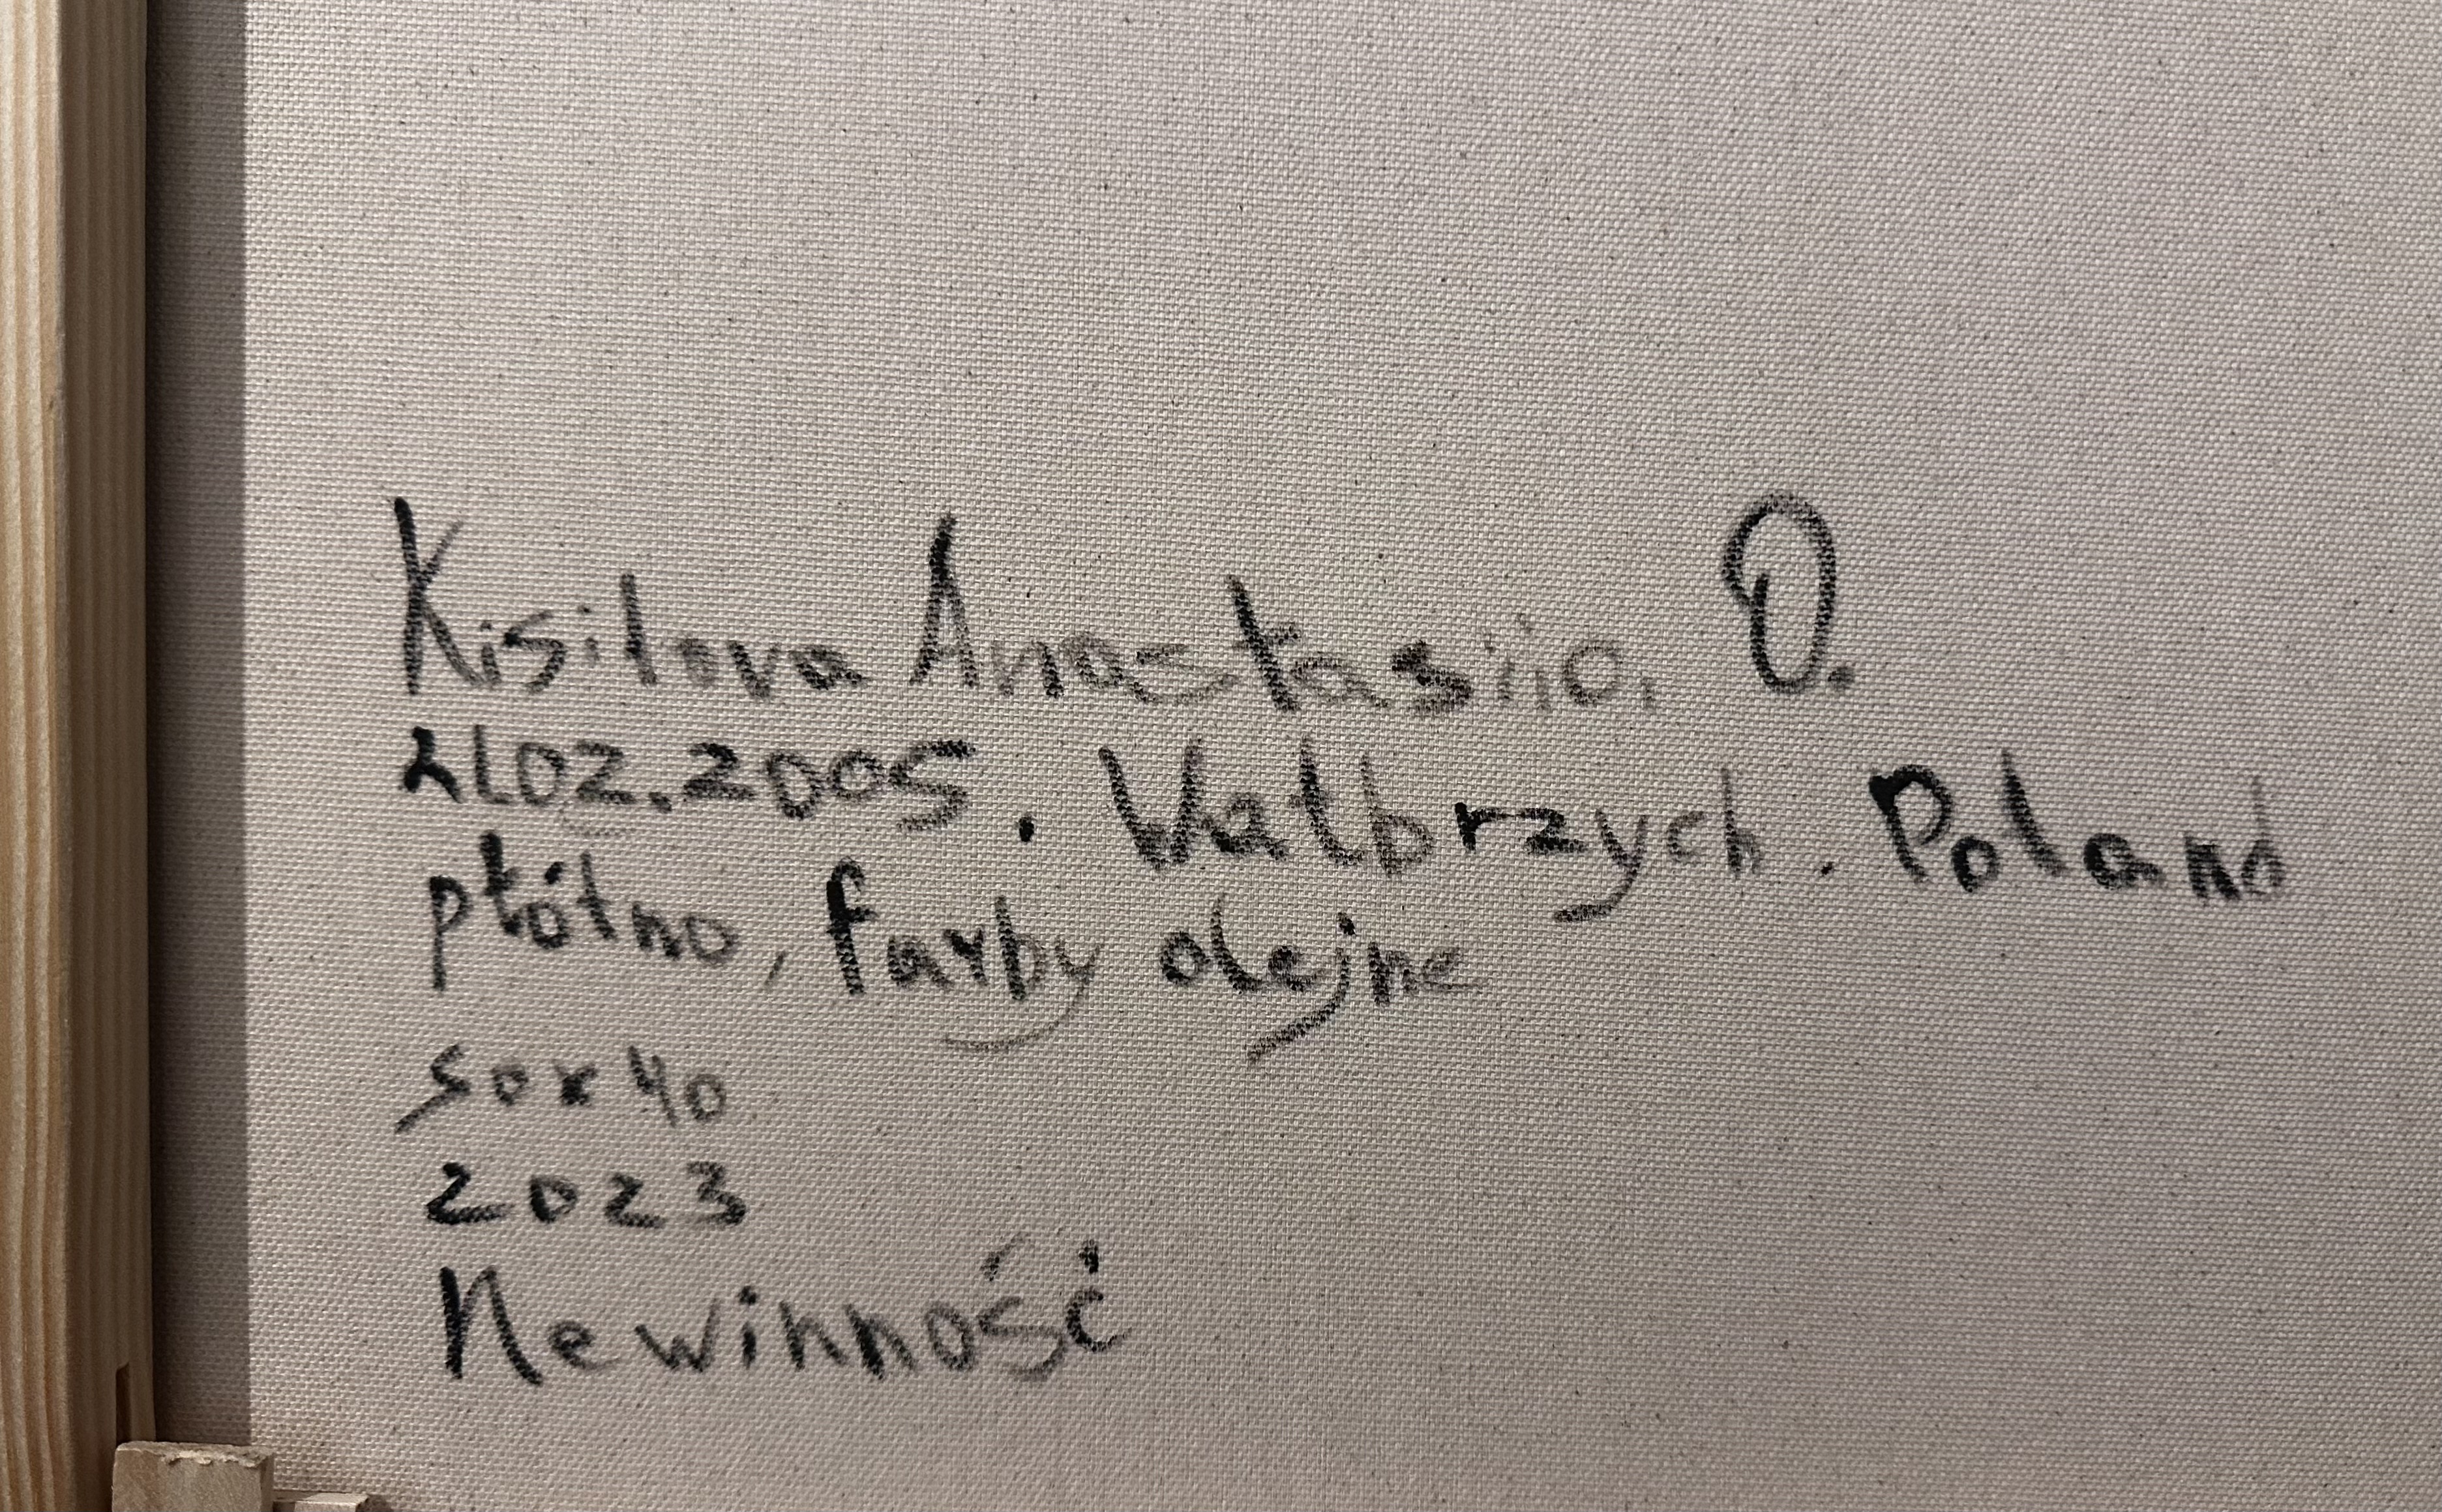 Kisilova Anastasiia O.
21.02.2005. Wałbrzych. Poland
płótno, farby olejne
50x40
2023
Newinność